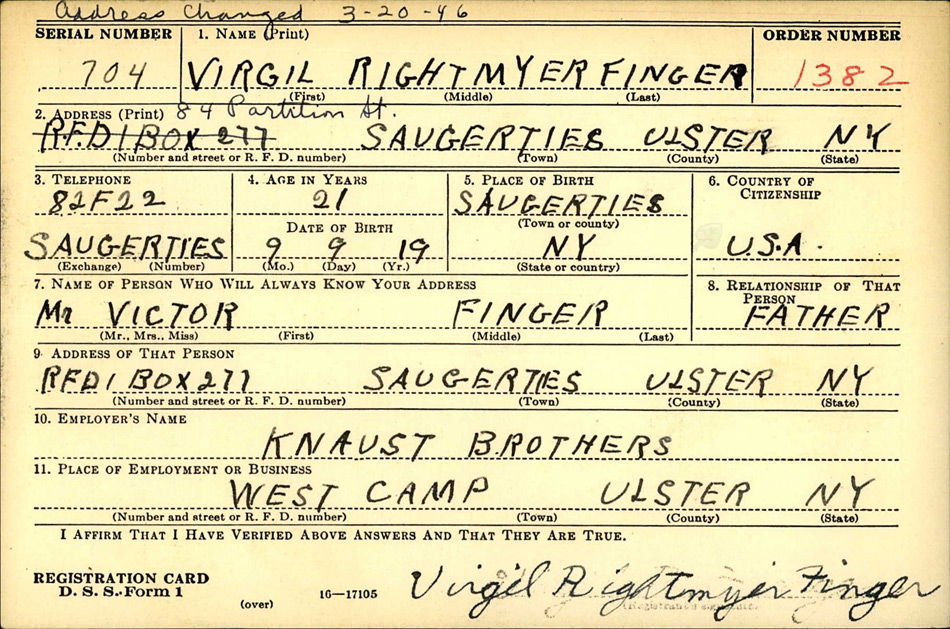 Address Changed 3-20-46
SERIAL NUMBER 1. NAME (Print) ORDER NUMBER
704 VIRGIL RIGHTMYER FINGER 1382
(First) (Middle) (Last)
2. ADDRESS (Print) 84 Partition St.
R.F.D 1 BOX 277 SAUGERTIES ULSTER NY
(Number and street or R. F. D. number) (Town) (County) (State)
3. TELEPHONE 4. AGE IN YEARS 5. PLACE OF BIRTH 6. COUNTRY OF CITIZENSHIP
82F22 21 SAUGERTIES
DATE OF BIRTH (Town or county)
SAUGERTIES 9 9 19 NY U.S.A.
(Exchange) (Number) (Mo.) (Day) (Yr.) (State or country)
7. NAME OF PERSON WHO WILL ALWAYS KNOW YOUR ADDRESS 8. RELATIONSHIP OF THAT PERSON
Mr VICTOR FINGER FATHER
(Mr., Mrs., Miss) (First) (Middle) (Last)
9. ADDRESS OF THAT PERSON
RFD 1 BOX 277 SAUGERTIES ULSTER NY
(Number and street or R. F. D. number) (Town) (County) (State)
10. EMPLOYER'S NAME
KNAUST BROTHERS
11. PLACE OF EMPLOYMENT OR BUSINESS
WEST CAMP ULSTER NY
(Number and street or R. F. D. number) (Town) (County) (State)
I AFFIRM THAT I HAVE VERIFIED ABOVE ANSWERS AND THAT THEY ARE TRUE.
REGISTRATION CARD
D. S. S. Form 1 (over) 16—17105 Virgil Rightmyer Finger